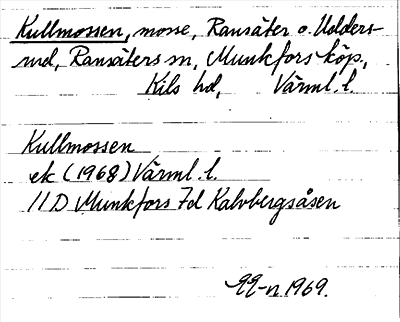 Kullmossen, mosse, Ransäter o. Udders-
rud, Ransäters sn, Munkfors köp.,
Kils hd, Värml. l.
Kullmossen
ek (1968) Värml. l.
11D Munkfors 7d Kalvbergsåsen
1969.